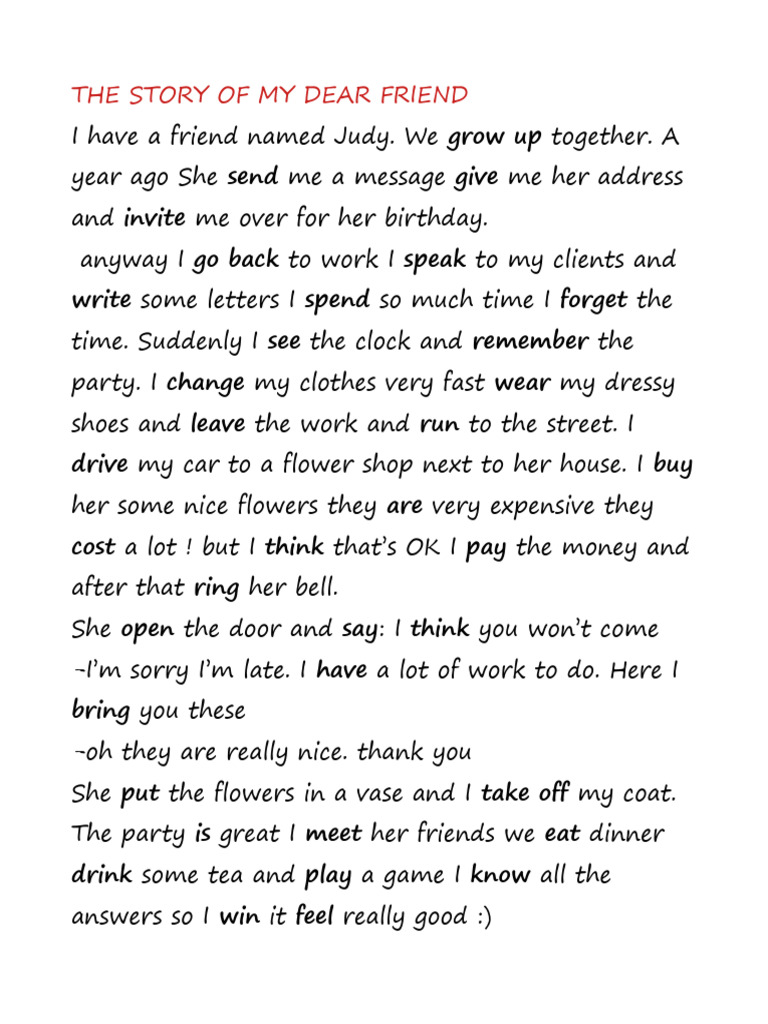 THE STORY OF MY DEAR FRIEND
I have a friend named Judy. We grow up together. A
year ago She send me a message give me her address
and invite me over for her birthday.
anyway I go back to work I speak to my clients and
write some letters I spend so much time I forget the
time. Suddenly I see the clock and remember the
party. I change my clothes very fast wear my dressy
shoes and leave the work and run to the street. I
drive my car to a flower shop next to her house. I buy
her some nice flowers they are very expensive they
cost a lot ! but I think that's OK I pay the money and
after that ring her bell.
She open the door and say: I think you won't come
-I'm sorry I'm late. I have a lot of work to do. Here I
bring you these
-oh they are really nice. thank you
She put the flowers in a vase and I take off my coat.
The party is great I meet her friends we eat dinner
drink some tea and play a game I know all the
answers so I win it feel really good :)